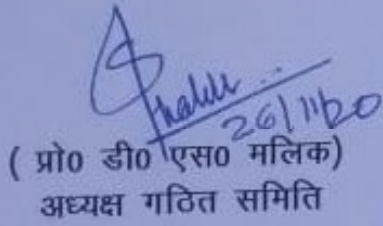 26/11/20
( प्रो0 डी0 एस0 मलिक)
अध्यक्ष गठित समिति